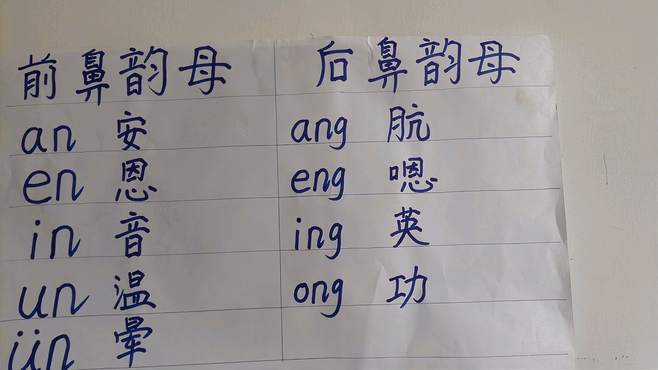 前鼻韵母 后鼻韵母
an 安 ang 肮
en 恩 eng 嗯
in 音 ing 英
un 温 ong 功
ün 晕